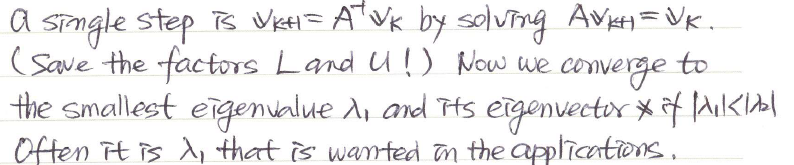 a single step is v_{k+1} = A^{-1} v_k by solving A v_{k+1} = v_k.
(Save the factors L and U!) Now we converge to
the smallest eigenvalue λ₁ and its eigenvector x if |λ₁|<|λ₂|
Often it is λ₁ that is wanted in the applications.